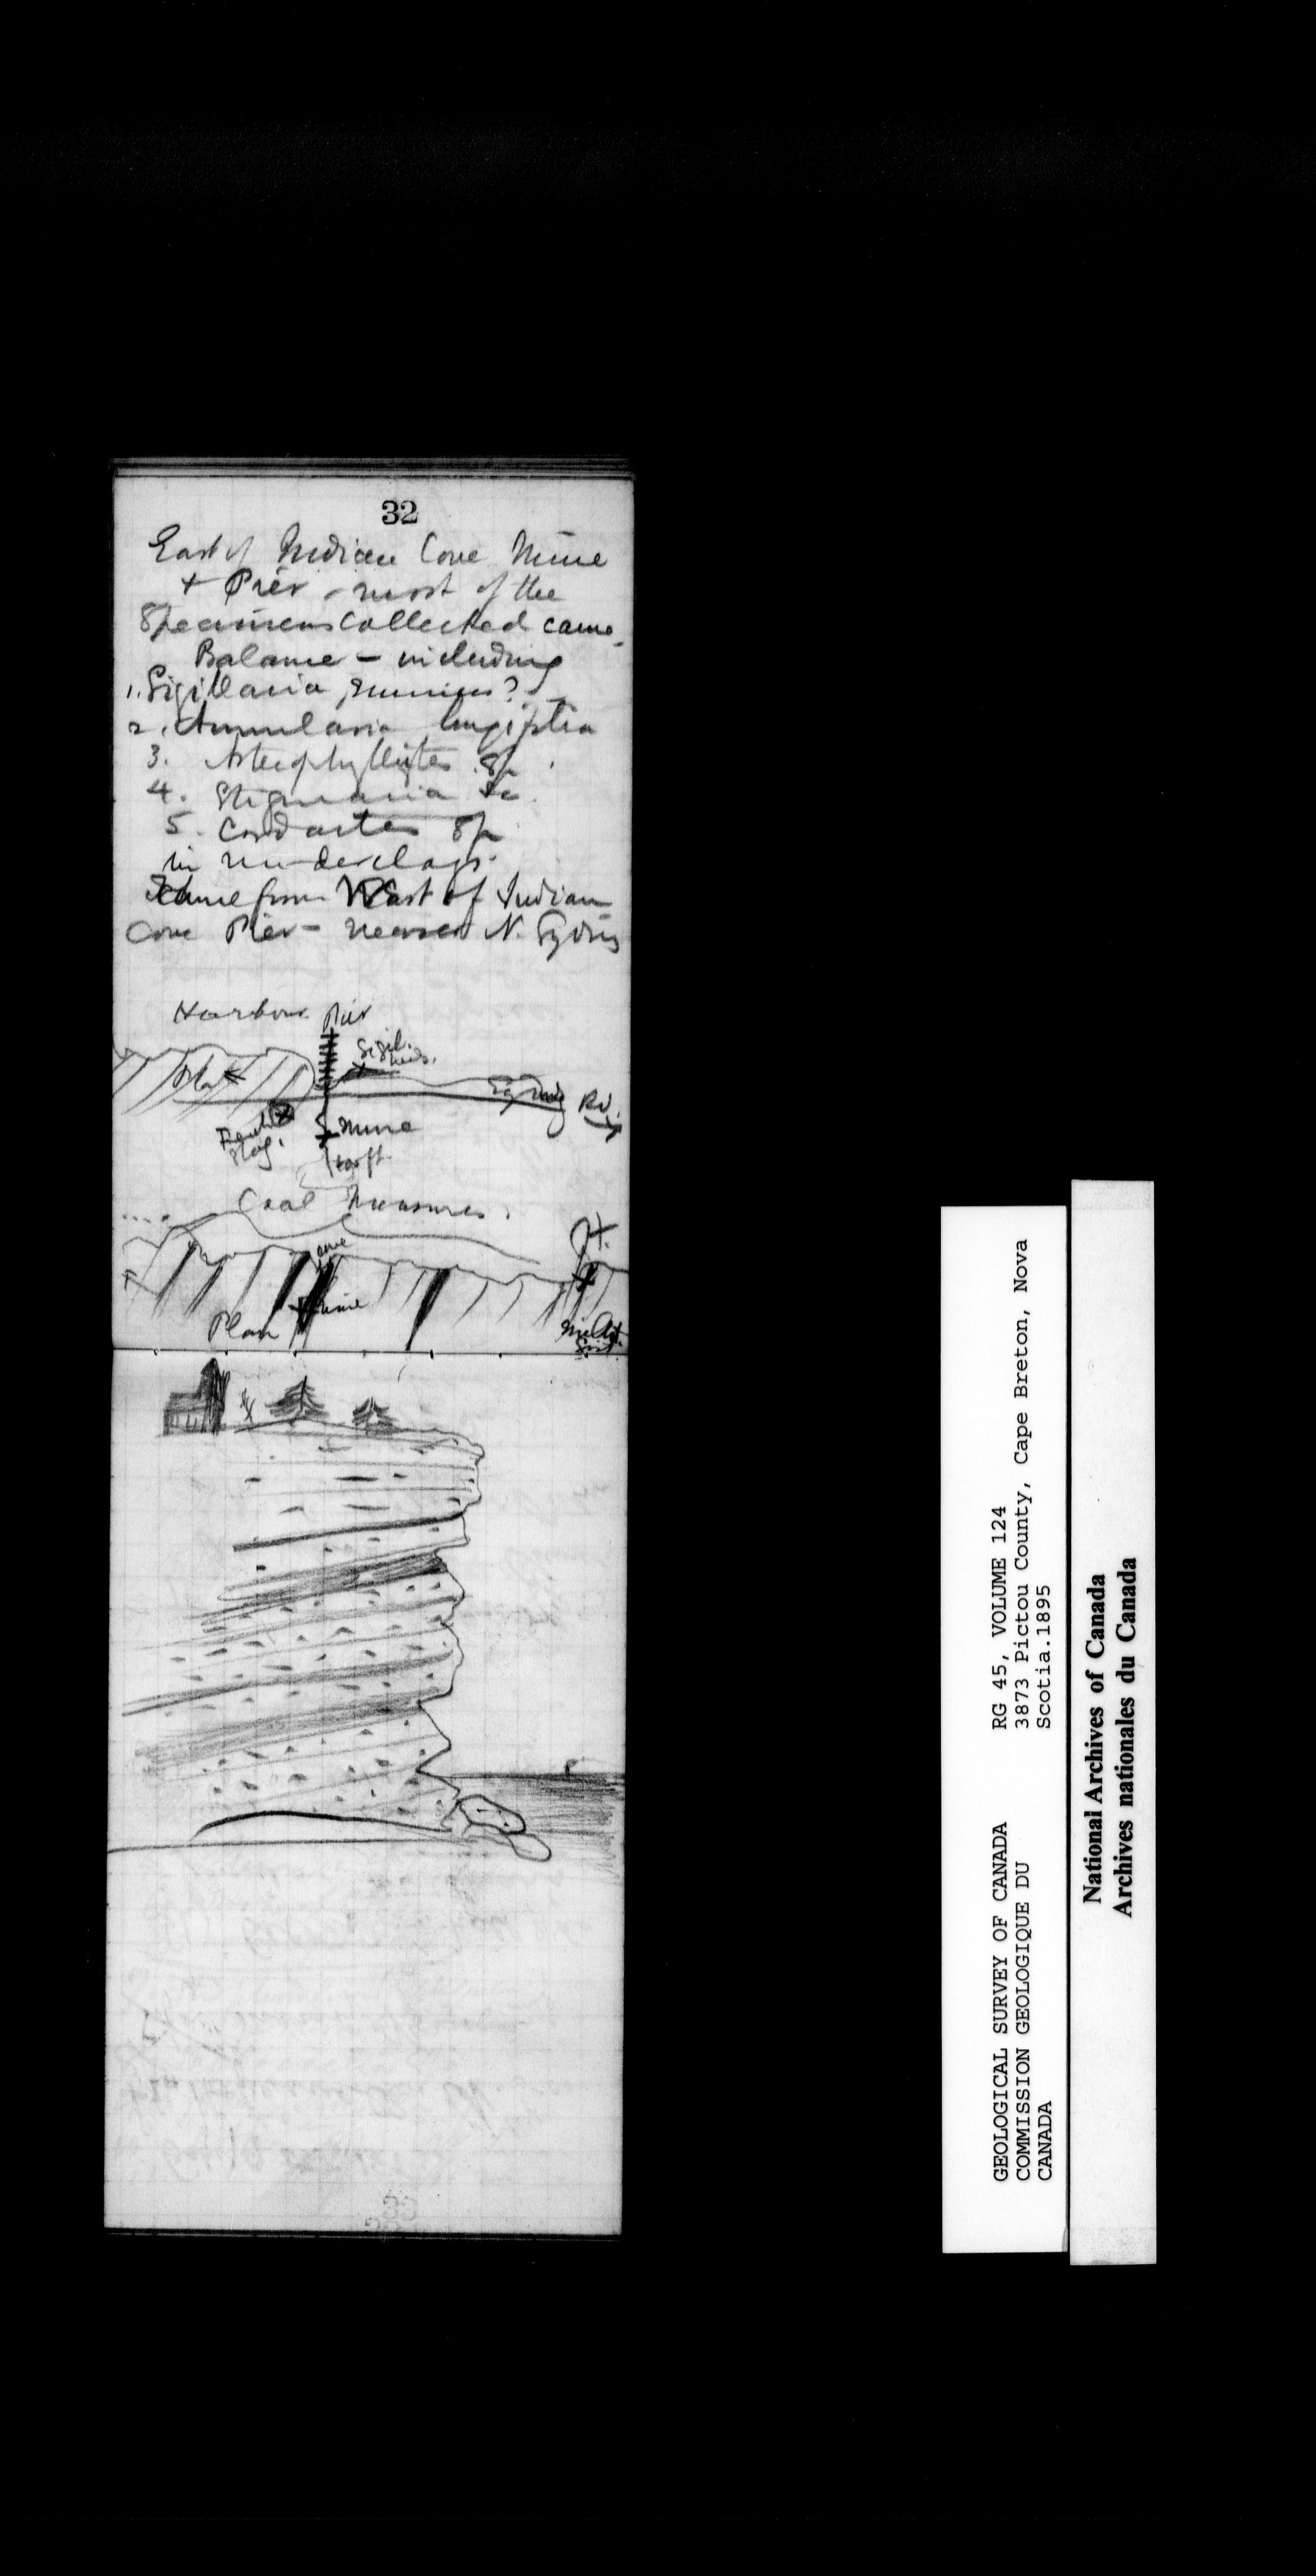 32
East of Indian Cove Mine
+ Pier - most of the
Specimens collected came
Balance - including
1. Sigillaria
2. Annularia
3. Asterophyllites sp.
4. Stigmaria &c
5. Cordaites sp
in underclays.
came from West of Indian
Cove Pier - nearer N. Sydney
Harbour Pier
Sigil. beds.
Sydney Rd.
Mine
Shaft
Coal Measures.
Cove
Pt.
Mine
Plan
Millst.
Grit
RG 45, VOLUME 124
3873 Pictou County, Cape Breton, Nova
Scotia.1895
GEOLOGICAL SURVEY OF CANADA
COMMISSION GEOLOGIQUE DU
CANADA
National Archives of Canada
Archives nationales du Canada